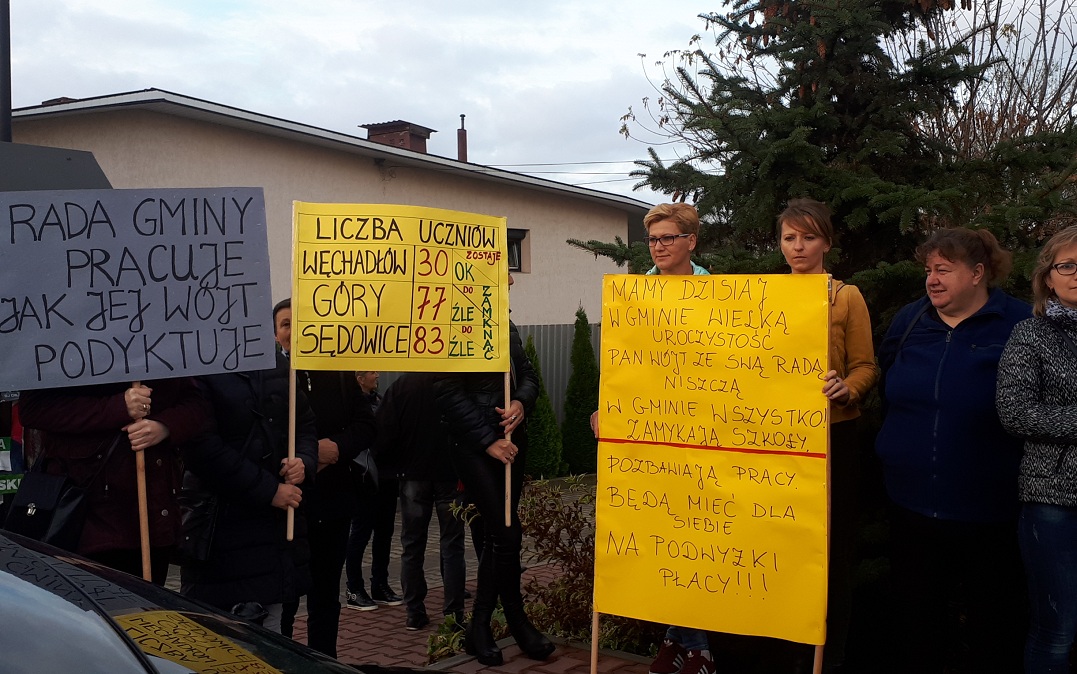 RADA GMINY
PRACUJE
JAK JEJ WÓJT
PODYKTUJE
LICZBA UCZNIÓW
WĘCHADŁÓW 30 ZOSTAJE OK
GÓRY 77 DO ŹLE
SĘDOWICE 83 DO ŹLE
ZAMKNĄĆ
MAMY DZISIAJ
W GMINIE WIELKĄ
UROCZYSTOŚĆ
PAN WÓJT ZE SWĄ RADĄ
NISZCZĄ
W GMINIE WSZYSTKO!
ZAMYKAJĄ SZKOŁY,
POZBAWIAJĄ PRACY.
BĘDĄ MIEĆ DLA
SIEBIE
NA PODWYŻKI
PŁACY!!!